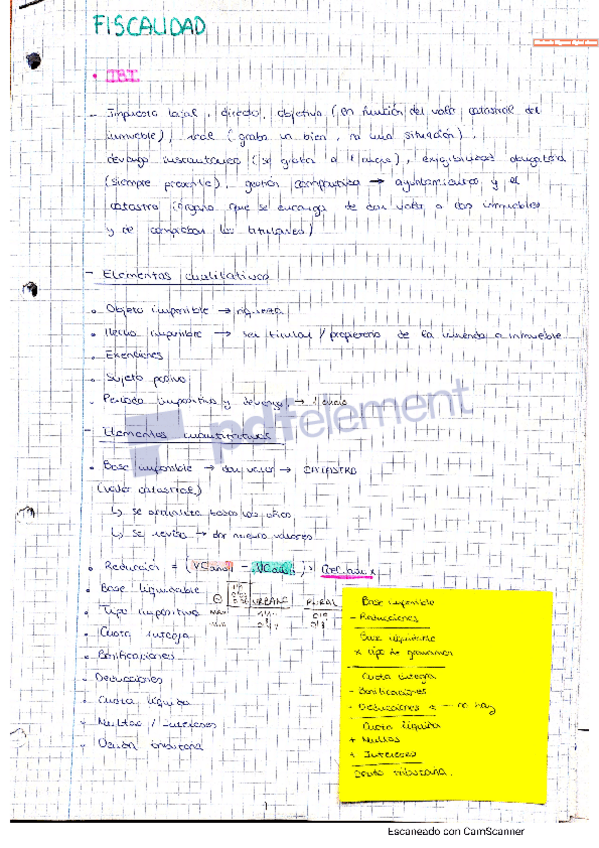 FISCALIDAD
• IBI
- Impuesto local, directo, objetivo (en función del valor catastral del
inmueble), real (graba un bien, no una situación),
devengo instantáneo (se graba el 1 enero), exigibilidad obligatoria
(siempre presente), gestión compartida → ayuntamientos y el
catastro (órgano que se encarga de dar valor a los inmuebles
y de comprobar los titulares)
- Elementos cualitativos
• Objeto imponible → riqueza
• Hecho imponible → ser titular / propietario de la vivienda o inmueble
• Exenciones
• Sujeto pasivo
• Período impositivo y devengo → 1 enero
- Elementos cuantitativos
• Base imponible → dar valor → CATASTRO
(valor catastral)
↳ se actualiza todos los años
↳ se revisa → dar nuevos valores
• Reducción =
• Base liquidable
• Tipo impositivo URBANO RURAL
• Cuota íntegra
• Bonificaciones
- Deducciones
• Cuota líquida
- Multas / intereses
- Deuda tributaria
Base imponible
- Reducciones
Base liquidable
x tipo de gravamen
Cuota íntegra
- Bonificaciones
- Deducciones ← no hay
Cuota líquida
+ Multas
+ Intereses
Deuda tributaria.
1
pdfelement
Escaneado con CamScanner